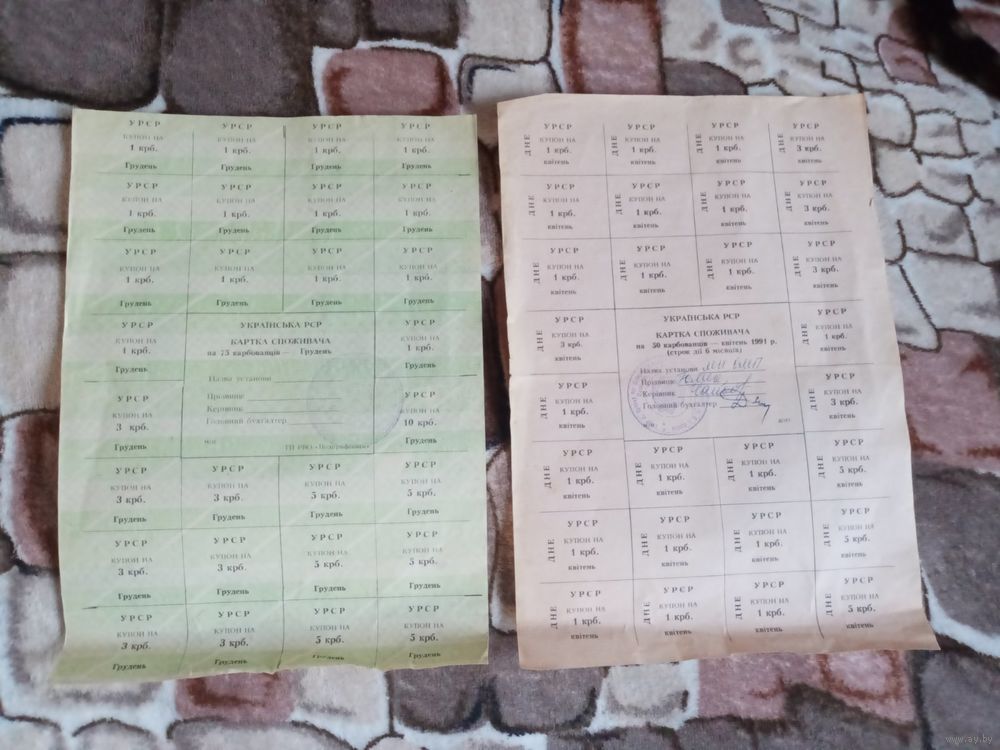 УРСР УРСР УРСР УРСР
КУПОН НА КУПОН НА КУПОН НА КУПОН НА
1 крб. 1 крб. 1 крб. 1 крб.
Грудень Грудень Грудень Грудень
УРСР УРСР УРСР УРСР
КУПОН НА КУПОН НА КУПОН НА КУПОН НА
1 крб. 1 крб. 1 крб. 1 крб.
Грудень Грудень Грудень Грудень
УРСР УРСР УРСР УРСР
КУПОН НА КУПОН НА КУПОН НА КУПОН НА
1 крб. 1 крб. 1 крб. 1 крб.
Грудень Грудень Грудень Грудень
УРСР
КУПОН НА
1 крб.
Грудень
УКРАЇНСЬКА РСР
КАРТКА СПОЖИВАЧА
на 75 карбованців — Грудень
Назва установи
Прізвище
Керівник
Головний бухгалтер
УРСР
КУПОН НА
1 крб.
Грудень
УРСР
КУПОН НА
3 крб.
Грудень
УРСР
КУПОН НА
10 крб.
Грудень
УРСР УРСР УРСР УРСР
КУПОН НА КУПОН НА КУПОН НА КУПОН НА
3 крб. 3 крб. 5 крб. 5 крб.
Грудень Грудень Грудень Грудень
УРСР УРСР УРСР УРСР
КУПОН НА КУПОН НА КУПОН НА КУПОН НА
3 крб. 3 крб. 5 крб. 5 крб.
Грудень Грудень Грудень Грудень
УРСР УРСР УРСР УРСР
КУПОН НА КУПОН НА КУПОН НА КУПОН НА
3 крб. 3 крб. 5 крб. 5 крб.
Грудень Грудень Грудень Грудень
ДНЕ ДНЕ ДНЕ ДНЕ
УРСР УРСР УРСР УРСР
КУПОН НА КУПОН НА КУПОН НА КУПОН НА
1 крб. 1 крб. 1 крб. 3 крб.
квітень квітень квітень квітень
ДНЕ ДНЕ ДНЕ ДНЕ
УРСР УРСР УРСР УРСР
КУПОН НА КУПОН НА КУПОН НА КУПОН НА
1 крб. 1 крб. 1 крб. 3 крб.
квітень квітень квітень квітень
ДНЕ ДНЕ ДНЕ ДНЕ
УРСР УРСР УРСР УРСР
КУПОН НА КУПОН НА КУПОН НА КУПОН НА
1 крб. 1 крб. 1 крб. 3 крб.
квітень квітень квітень квітень
ДНЕ
УРСР
КУПОН НА
3 крб.
квітень
УКРАЇНСЬКА РСР
КАРТКА СПОЖИВАЧА
на 50 карбованців — квітень 1991 р.
(строк дії 6 місяців)
Назва установи
Прізвище
Керівник
Головний бухгалтер
ДНЕ
УРСР
КУПОН НА
1 крб.
квітень
ДНЕ
УРСР
КУПОН НА
1 крб.
квітень
ДНЕ
УРСР
КУПОН НА
3 крб.
квітень
ДНЕ ДНЕ ДНЕ ДНЕ
УРСР УРСР УРСР УРСР
КУПОН НА КУПОН НА КУПОН НА КУПОН НА
1 крб. 1 крб. 1 крб. 5 крб.
квітень квітень квітень квітень
ДНЕ ДНЕ ДНЕ ДНЕ
УРСР УРСР УРСР УРСР
КУПОН НА КУПОН НА КУПОН НА КУПОН НА
1 крб. 1 крб. 1 крб. 5 крб.
квітень квітень квітень квітень
ДНЕ ДНЕ ДНЕ ДНЕ
УРСР УРСР УРСР УРСР
КУПОН НА КУПОН НА КУПОН НА КУПОН НА
1 крб. 1 крб. 1 крб. 5 крб.
квітень квітень квітень квітень
www.ay.by